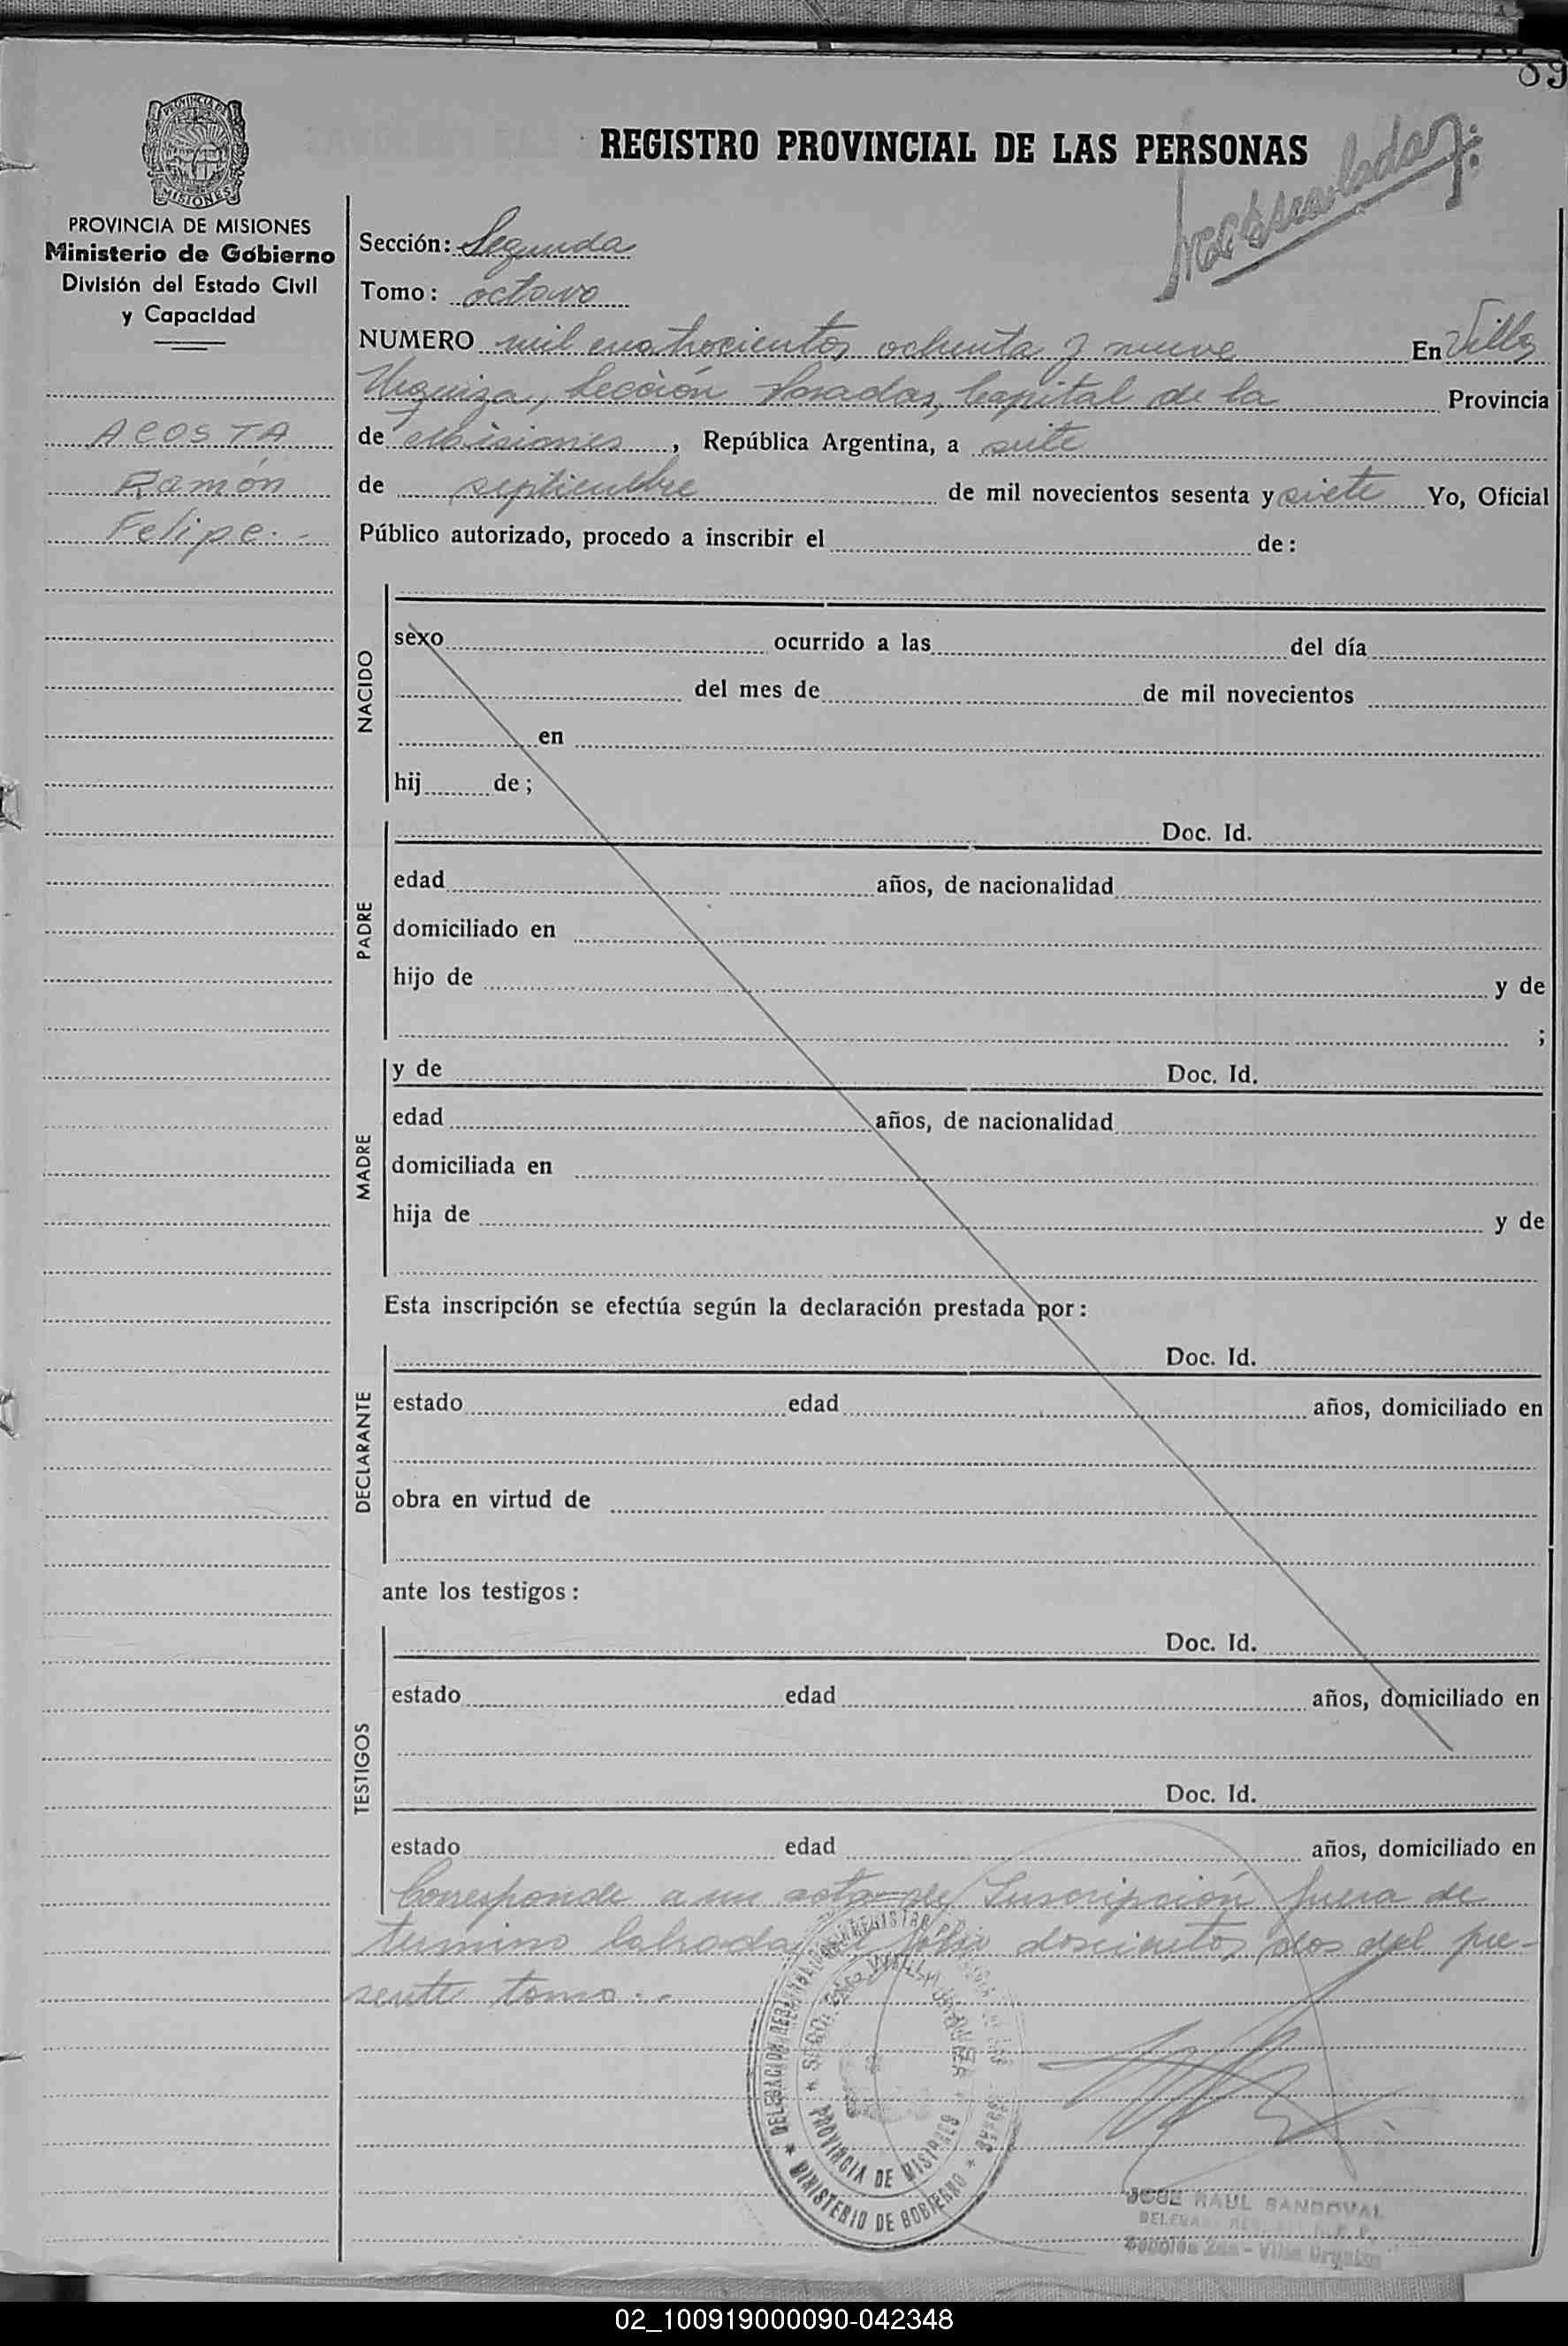 89
REGISTRO PROVINCIAL DE LAS PERSONAS
PROVINCIA DE
MISIONES
PROVINCIA DE MISIONES
Ministerio de Gobierno
División del Estado Civil
y Capacidad
ACOSTA
Ramón
Felipe.-
Sección: Segunda
Tomo: octavo
NUMERO mil cuatrocientos ochenta y nueve En Villa
Urquiza, Sección Posadas, Capital de la Provincia
de Misiones, República Argentina, a siete
de septiembre de mil novecientos sesenta y siete Yo, Oficial
Público autorizado, procedo a inscribir el de:
NACIDO
sexo ocurrido a las del día
del mes de de mil novecientos
en
hij de;
PADRE
Doc. Id.
edad años, de nacionalidad
domiciliado en
hijo de y de
;
MADRE
y de Doc. Id.
edad años, de nacionalidad
domiciliada en
hija de y de
Esta inscripción se efectúa según la declaración prestada por:
DECLARANTE
Doc. Id.
estado edad años, domiciliado en
obra en virtud de
ante los testigos:
TESTIGOS
Doc. Id.
estado edad años, domiciliado en
Doc. Id.
estado edad años, domiciliado en
Corresponde a un acta de Inscripción fuera de
termino labrada al folio doscientos dos del pre-
sente tomo.-
PROVINCIA DE MISIONES
MINISTERIO DE GOBIERNO
JOSE RAUL SANDOVAL
Sección 2da - Villa Urquiza
02_100919000090-042348